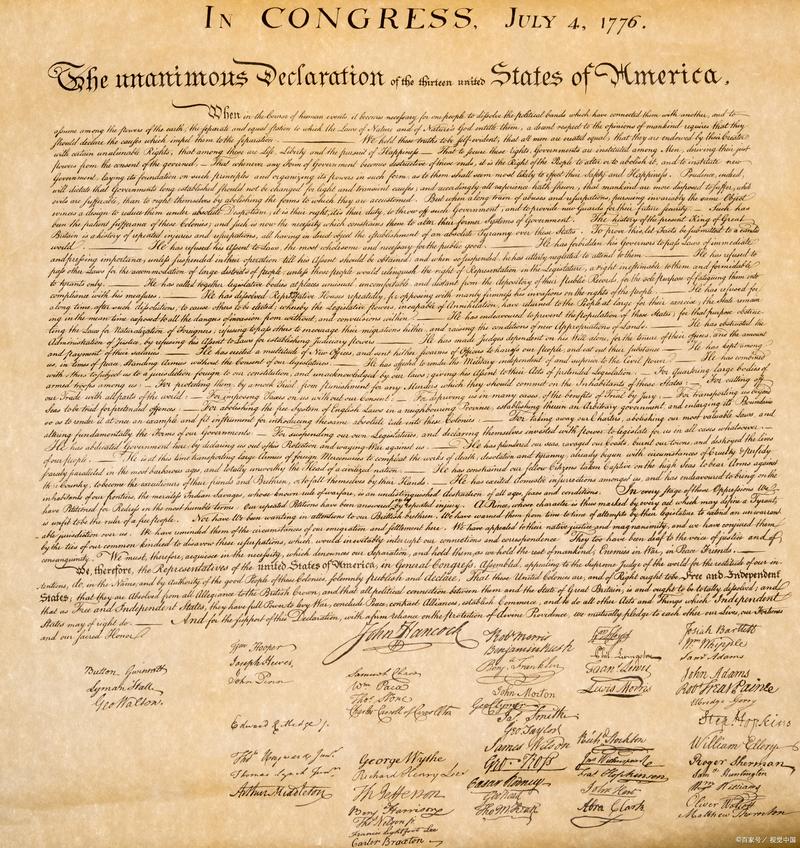 IN CONGRESS, JULY 4, 1776.
The unanimous Declaration of the thirteen united States of America,
When in the Course of human events, it becomes necessary for one people to dissolve the political bands which have connected them with another, and to
assume among the powers of the earth, the separate and equal station to which the Laws of Nature and of Nature's God entitle them, a decent respect to the opinions of mankind requires that they
should declare the causes which impel them to the separation. We hold these truths to be self-evident, that all men are created equal, that they are endowed by their Creator
with certain unalienable Rights, that among these are Life, Liberty and the pursuit of Happiness. — That to secure these rights, Governments are instituted among Men, deriving their just
powers from the consent of the governed, — That whenever any Form of Government becomes destructive of these ends, it is the Right of the People to alter or to abolish it, and to institute new
Government, laying its foundation on such principles and organizing its powers in such form, as to them shall seem most likely to effect their Safety and Happiness. Prudence, indeed,
will dictate that Governments long established should not be changed for light and transient causes; and accordingly all experience hath shewn, that mankind are more disposed to suffer, while
evils are sufferable, than to right themselves by abolishing the forms to which they are accustomed. But when a long train of abuses and usurpations, pursuing invariably the same Object
evinces a design to reduce them under absolute Despotism, it is their right, it is their duty, to throw off such Government, and to provide new Guards for their future security. — Such has
been the patient sufferance of these Colonies; and such is now the necessity which constrains them to alter their former Systems of Government. The history of the present King of Great
Britain is a history of repeated injuries and usurpations, all having in direct object the establishment of an absolute Tyranny over these States. To prove this, let Facts be submitted to a candid
world. He has refused his Assent to Laws, the most wholesome and necessary for the public good. He has forbidden his Governors to pass Laws of immediate
and pressing importance, unless suspended in their operation till his Assent should be obtained; and when so suspended, he has utterly neglected to attend to them. He has refused to
pass other Laws for the accommodation of large districts of people, unless those people would relinquish the right of Representation in the Legislature, a right inestimable to them and formidable
to tyrants only. He has called together legislative bodies at places unusual, uncomfortable, and distant from the depository of their Public Records, for the sole purpose of fatiguing them into
compliance with his measures. He has dissolved Representative Houses repeatedly, for opposing with manly firmness his invasions on the rights of the people. He has refused for
a long time, after such dissolutions, to cause others to be elected; whereby the Legislative powers, incapable of Annihilation, have returned to the People at large for their exercise; the State remain
ing in the mean time exposed to all the dangers of invasion from without, and convulsions within. He has endeavoured to prevent the population of these States; for that purpose obstruc
ting the Laws for Naturalization of Foreigners; refusing to pass others to encourage their migrations hither, and raising the conditions of new Appropriations of Lands. He has obstructed the
Administration of Justice, by refusing his Assent to Laws for establishing Judiciary powers. He has made Judges dependent on his Will alone, for the tenure of their offices, and the amount
and payment of their salaries. He has erected a multitude of New Offices, and sent hither swarms of Officers to harrass our people, and eat out their substance. He has kept among
us, in times of peace, Standing Armies without the Consent of our legislatures. He has affected to render the Military independent of and superior to the Civil power. He has combined
with others to subject us to a jurisdiction foreign to our constitution, and unacknowledged by our laws; giving his Assent to their Acts of pretended Legislation: — For Quartering large bodies of
armed troops among us: — For protecting them, by a mock Trial, from punishment for any Murders which they should commit on the Inhabitants of these States: — For cutting off
our Trade with all parts of the world: — For imposing Taxes on us without our Consent: — For depriving us in many cases, of the benefits of Trial by Jury: — For transporting us beyond
Seas to be tried for pretended offences — For abolishing the free System of English Laws in a neighbouring Province, establishing therein an Arbitrary government, and enlarging its Boundaries
so as to render it at once an example and fit instrument for introducing the same absolute rule into these Colonies: — For taking away our Charters, abolishing our most valuable Laws, and
altering fundamentally the Forms of our Governments: — For suspending our own Legislatures, and declaring themselves invested with power to legislate for us in all cases whatsoever. —
He has abdicated Government here, by declaring us out of his Protection and waging War against us. He has plundered our seas, ravaged our Coasts, burnt our towns, and destroyed the lives
of our people. He is at this time transporting large Armies of foreign Mercenaries to compleat the works of death, desolation and tyranny, already begun with circumstances of Cruelty & perfidy
scarcely paralleled in the most barbarous ages, and totally unworthy the Head of a civilized nation. He has constrained our fellow Citizens taken Captive on the high Seas to bear Arms against
their Country, to become the executioners of their friends and Brethren, or to fall themselves by their Hands. He has excited domestic insurrections amongst us, and has endeavoured to bring on the
inhabitants of our frontiers, the merciless Indian Savages, whose known rule of warfare, is an undistinguished destruction of all ages, sexes and conditions. In every stage of these Oppressions We
have Petitioned for Redress in the most humble terms: Our repeated Petitions have been answered only by repeated injury. A Prince, whose character is thus marked by every act which may define a Tyrant,
is unfit to be the ruler of a free people. Nor have We been wanting in attentions to our Brittish brethren. We have warned them from time to time of attempts by their legislature to extend an unwarrant
able jurisdiction over us. We have reminded them of the circumstances of our emigration and settlement here. We have appealed to their native justice and magnanimity, and we have conjured them
by the ties of our common kindred to disavow these usurpations, which, would inevitably interrupt our connections and correspondence. They too have been deaf to the voice of justice and of
consanguinity. We must, therefore, acquiesce in the necessity, which denounces our Separation, and hold them, as we hold the rest of mankind, Enemies in War, in Peace Friends.
We, therefore, the Representatives of the united States of America, in General Congress, Assembled, appealing to the Supreme Judge of the world for the rectitude of our in
tentions, do, in the Name, and by authority of the good People of these Colonies, solemnly publish and declare, That these United Colonies are, and of Right ought to be Free and Independent
States; that they are Absolved from all Allegiance to the British Crown, and that all political connection between them and the State of Great Britain, is and ought to be totally dissolved; and
that as Free and Independent States, they have full Power to levy War, conclude Peace, contract Alliances, establish Commerce, and to do all other Acts and Things which Independent
States may of right do. And for the support of this Declaration, with a firm reliance on the protection of divine Providence, we mutually pledge to each other our Lives, our Fortunes
and our sacred Honor.
John Hancock
Button Gwinnett
Lyman Hall
Geo Walton.
Wm Hooper
Joseph Hewes,
John Penn
Edward Rutledge.
Thos Heyward Junr.
Thomas Lynch Junr.
Arthur Middleton
Samuel Chase
Wm Paca
Thos Stone
Charles Carroll of Carrollton
George Wythe
Richard Henry Lee
Th Jefferson
Benj Harrison
Thos Nelson jr.
Francis Lightfoot Lee
Carter Braxton
Robt Morris
Benjamin Rush
Benj Franklin
John Morton
Geo Clymer
Jas Smith
Geo Taylor
James Wilson
Geo Ross
Caesar Rodney
Geo Read
Tho M:Kean
Phil. Livingston
Frans Lewis
Lewis Morris
Richd Stockton
Jno Witherspoon
Fras Hopkinson
John Hart
Abra Clark
Josiah Bartlett
Wm Whipple
Saml Adams
John Adams
Robt Treat Paine
Elbridge Gerry
Step Hopkins
William Ellery
Roger Sherman
Saml Huntington
Wm Williams
Oliver Wolcott
Matthew Thornton
©百家号/视觉中国